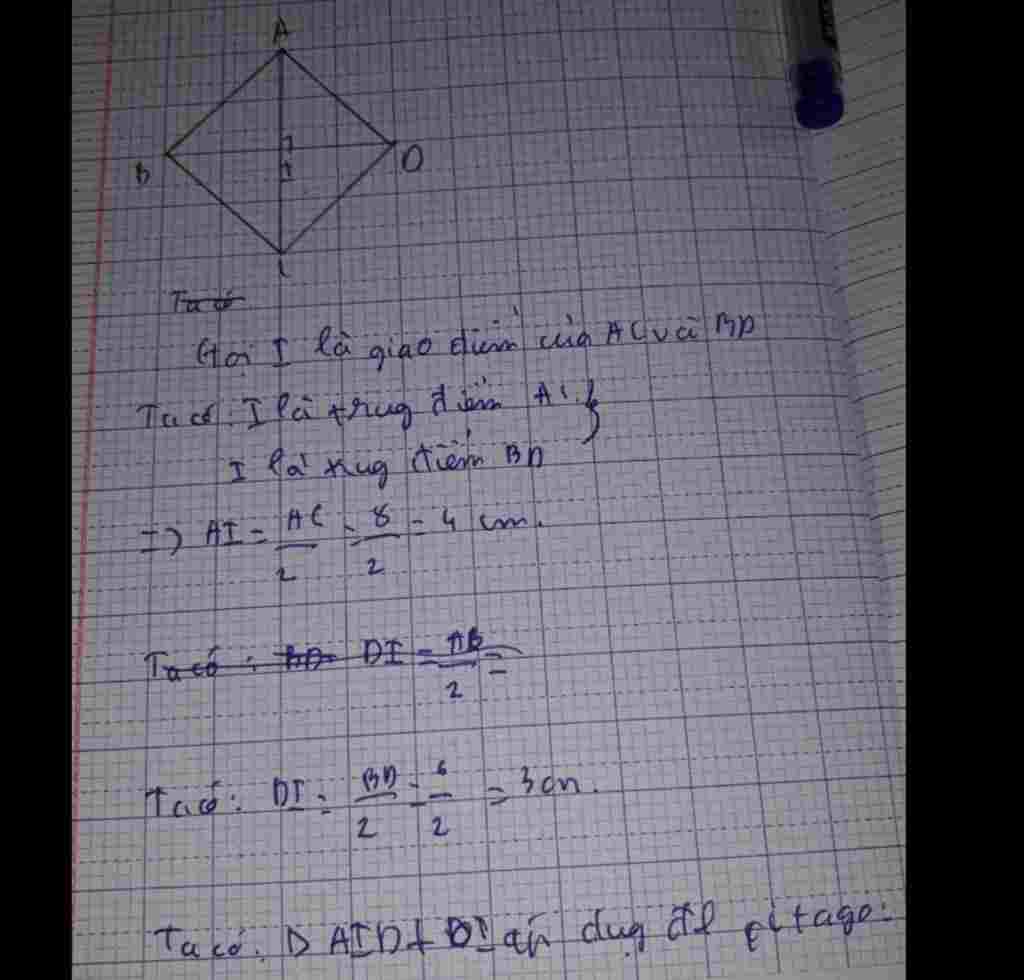 A
B
D
I
C
Ta có
Gọi I là giao điểm của AC và BD
Ta có: I là trug điểm AC }
I là trug điểm BD
=> AI = AC/2 = 8/2 = 4 cm.
Ta có: BD DI = AB/2 =
Ta có: DI = BD/2 = 6/2 = 3 cm.
Ta có: Δ AID ⊥ I áp dụg đl pitago: